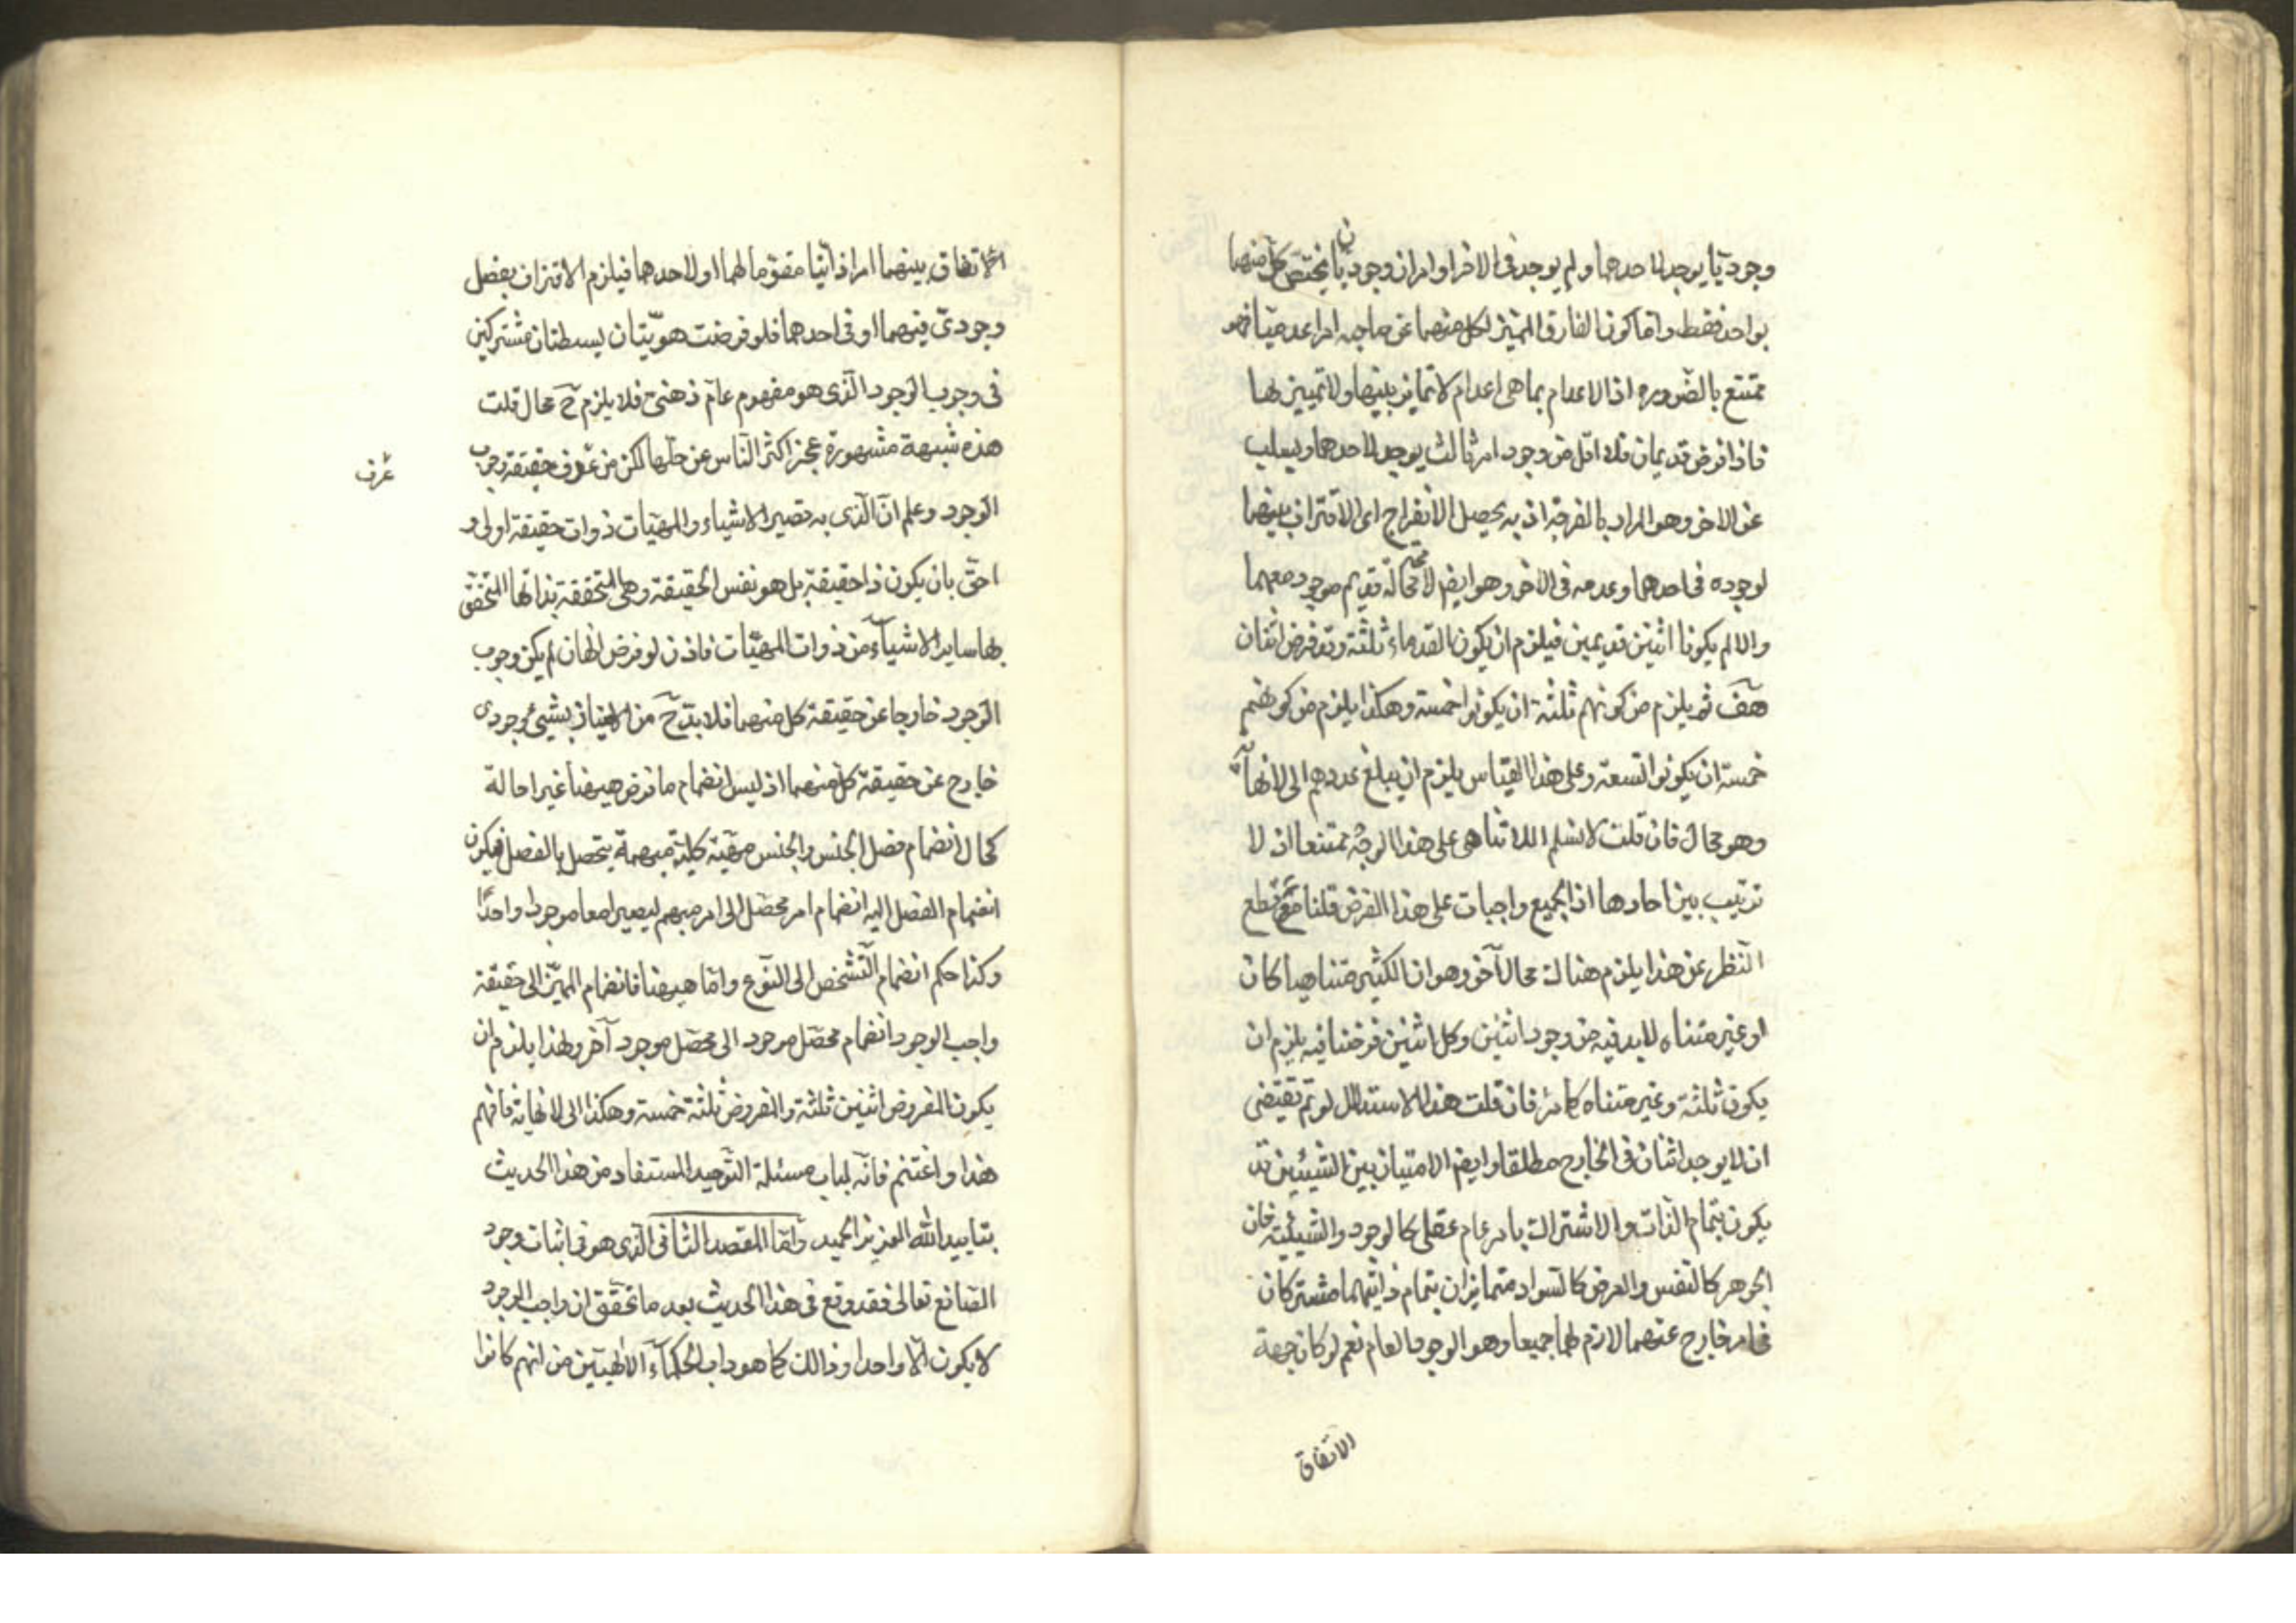 وجوديا يوجد لاحدهما ولم يوجد فى الاخر او امران وجوديان يختص كل منهما
بواحد فقط واما كون الفارق المميز لكل منهما عن صاحبه امرا عدميا فهو
ممتنع بالضروره اذ الاعدام بما هى اعدام لا تمايز بينها ولا تمييز لها
فاذا فرض قديمان فلا اقل من وجود امر ثالث يوجد لاحدهما ويسلب
عن الاخر وهو المراد بالفرجة اذ به يحصل الانفراج اى الافتراق بينهما
لوجوده فى احدهما وعدمه فى الاخر وهو ايضا لا محالة قديم موجود معهما
والا لم يكونا اثنين قديمين فيلزم ان يكون القدماء ثلثة وقد فرض اثنان
هف ثم يلزم من كونهم ثلثة ان يكونوا خمسة وهكذا يلزم من كونهم
خمسة ان يكونوا تسعة وعلى هذا القياس يلزم ان يبلغ عددهم الى لا نهاية
وهو محال فان قلت لا نسلم اللاتناهى على هذا الوجه ممتنعا اذ لا
ترتيب بين احادها اذ الجميع واجبات على هذا الفرض قلنا مع قطع
النظر عن هذا يلزم هناك محال آخر وهو ان الكثير متناهيا كان
او غير متناه لا بد فيه من وجود اثنين وكل اثنين فرضنا فيه يلزم ان
يكون ثلثة وغير متناه كما مر فان قلت هذا الاستدلال لو تم تقتضى
ان لا يوجد اثنان فى الخارج مطلقا وايضا الامتياز بين الشيئين قد
يكون بتمام الذات والاشتراك بامر عام عقلى كالوجود والشيئية فان
الجوهر كالنفس والعرض كالسواد متمايزان بتمام ذاتيهما مشتركان
فى امر خارج عنهما لازم لهما جميعا وهو الوجود العام نعم لو كان جهة
الاتفاق
الاتفاق بينهما امرا ذاتيا مقوما لهما او لاحدهما فيلزم الافتراق بفصل
وجودى فيهما او فى احدهما فلو فرضت هويتان بسيطتان مشتركتين
فى وجوب الوجود الذى هو مفهوم عام ذهنى فلا يلزم ح محال قلت
هذه شبهة مشهورة عجز اكثر الناس عن حلها لكن من عرف حقيقة وجوب
عرف
الوجود وعلم ان الذى به تصير الاشياء والمهيات ذوات حقيقة اولى و
احق بان يكون ذا حقيقة بل هو نفس الحقيقة وهى المتحققة بذاتها المتحقق
بها ساير الاشياء من ذوات المهيات فاذن لو فرض اثنان لم يكن وجوب
الوجود خارجا عن حقيقة كل منهما فلا بد ح من الامتياز بشيئ وجودى
خارج عن حقيقة كل منهما اذ ليس انضمام ما فرض هيهنا غير احالة
كحال انضمام فصل الجنس والجنس مهية كلية مبهمة يتحصل بالفصل فيكون
انضمام الفصل اليه انضمام امر محصل الى امر مبهم ليصيرا معا موجودا واحدا
وكذا حكم انضمام التشخص الى النوع واما هيهنا فانضمام المميز الى حقيقة
واجب الوجود انضمام محصل موجود الى محصل موجود آخر ولهذا يلزم ان
يكون المفروض اثنين ثلثة والمفروض ثلثة خمسة وهكذا الى لا نهاية فافهم
هذا واغتنم فانه لباب مسئلة التوحيد المستفاد من هذا الحديث
بتاييد الله العزيز الحميد واما المقصد الثانى الذى هو فى اثبات وجود
الصانع تعالى فقد وقع فى هذا الحديث بعد ما تحقق ان واجب الوجود
لا يكون الا واحدا وذالك كما هو داب الحكمآء الالهيين من انهم كانوا